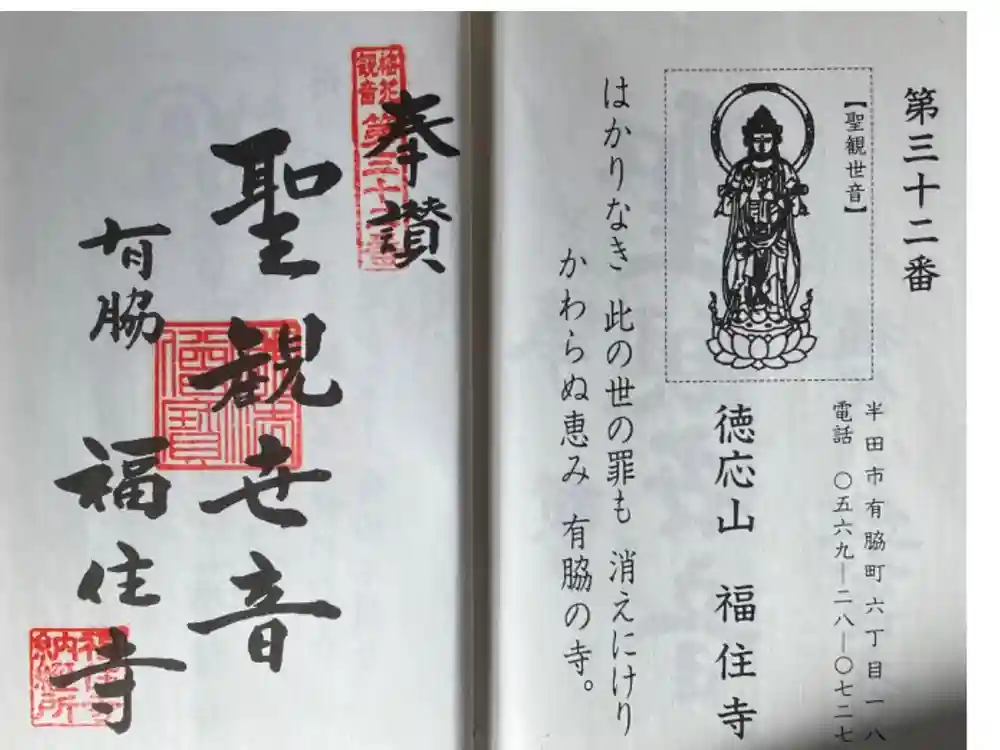 第三十二番
【聖観世音】
半田市有脇町六丁目一八
電話 〇五六九―二八―〇七二七
徳応山 福住寺
はかりなき 此の世の罪も 消えにけり
かわらぬ恵み 有脇の寺。
奉讃
観音
第三十二番
聖観世音
有脇
福住寺
福住寺
納経所